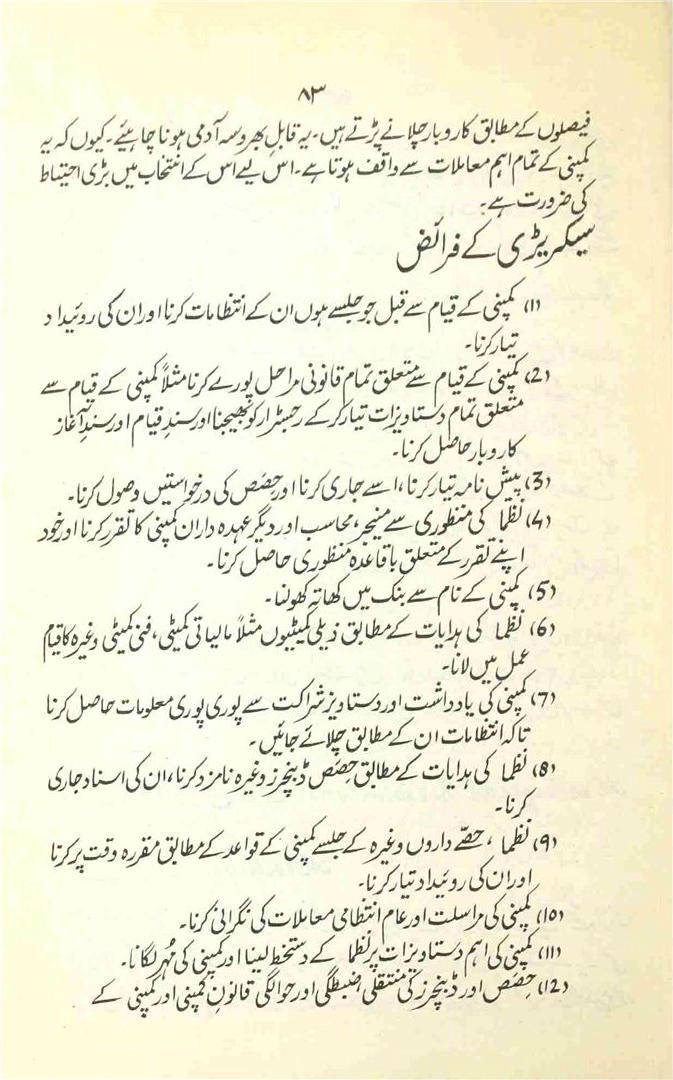 ۸۳
فیصلوں کے مطابق کاروبار چلانے پڑتے ہیں۔ یہ قابلِ بھروسہ آدمی ہونا چاہیئے۔ کیوں کہ یہ
کمپنی کے تمام اہم معاملات سے واقف ہوتا ہے۔ اس لیے اس کے انتخاب میں بڑی احتیاط
کی ضرورت ہے۔
سیکریٹری کے فرائض
(1) کمپنی کے قیام سے قبل جو جلسے ہوں ان کے انتظامات کرنا اور ان کی روئیداد
تیار کرنا۔
(2) کمپنی کے قیام سے متعلق تمام قانونی مراحل پورے کرنا مثلاً کمپنی کے قیام سے
متعلق تمام دستاویزات تیار کر کے رجسٹرار کو بھیجنا اور سندِ قیام اور سندِ آغاز
کاروبار حاصل کرنا۔
(3) پیش نامہ تیار کرنا، اسے جاری کرنا اور حِصَص کی درخواستیں وصول کرنا۔
(4) نظما کی منظوری سے منیجر، محاسب اور دیگر عہدہ داران کمپنی کا تقرر کرنا اور خود
اپنے تقرر کے متعلق باقاعدہ منظوری حاصل کرنا۔
(5) کمپنی کے نام سے بنک میں کھاتہ کھولنا۔
(6) نظما کی ہدایات کے مطابق ذیلی کمیٹیوں مثلاً مالیاتی کمیٹی، فنی کمیٹی وغیرہ کا قیام
عمل میں لانا۔
(7) کمپنی کی یادداشت اور دستاویز شراکت سے پوری پوری معلومات حاصل کرنا
تاکہ انتظامات ان کے مطابق چلائے جائیں۔
(8) نظما کی ہدایات کے مطابق حِصَص ڈبنچرز وغیرہ نامزد کرنا، ان کی اسناد جاری
کرنا۔
(9) نظما، حصّے داروں وغیرہ کے جلسے کمپنی کے قواعد کے مطابق مقررہ وقت پر کرنا
اور ان کی روئیداد تیار کرنا۔
(10) کمپنی کی مراسلت اور عام انتظامی معاملات کی نگرانی کرنا۔
(11) کمپنی کی اہم دستاویزات پر نظما کے دستخط لینا اور کمپنی کی مُہر لگانا۔
(12) حِصَص اور ڈبنچرز کی منتقلی ضبطگی اور حوالگی قانونِ کمپنی اور کمپنی کے